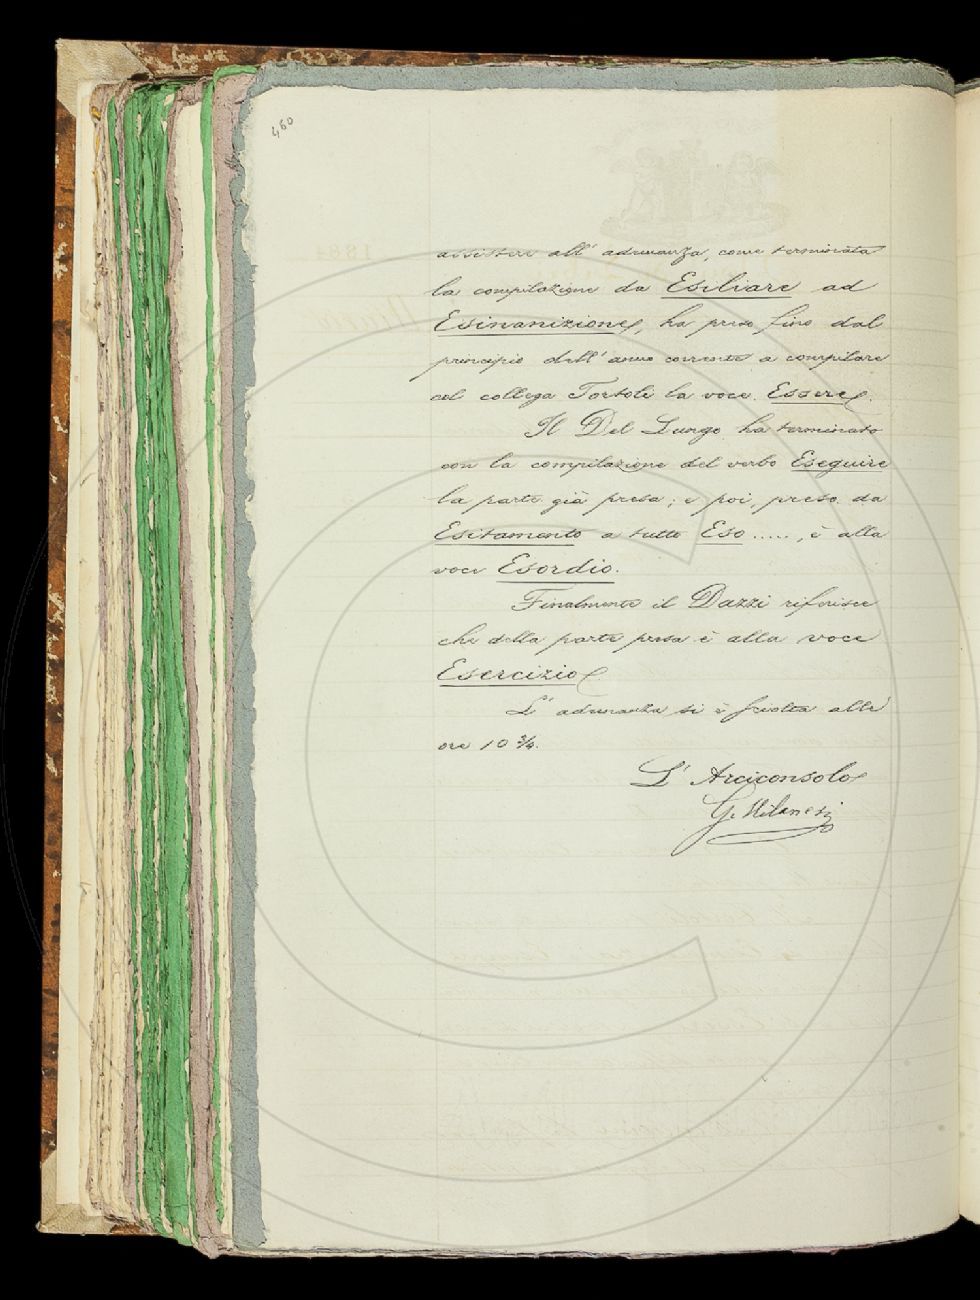 460
assistere all'adunanza, come terminata
la compilazione da Esiliare ad
Esinanizione, ha preso fino dal
principio dell'anno corrente a compilare
col collega Tortoli la voce Essere.
Il Del Lungo ha terminato
con la compilazione del verbo Eseguire
la parte già presa; e poi, preso da
Esitamento a tutto Eso....., è alla
voce Esordio.
Finalmente il Dazzi riferisce
che della parte presa è alla voce
Esercizio
L'adunanza si è sciolta alle
ore 10 3/4.
L'Arciconsolo
G. Milanesi